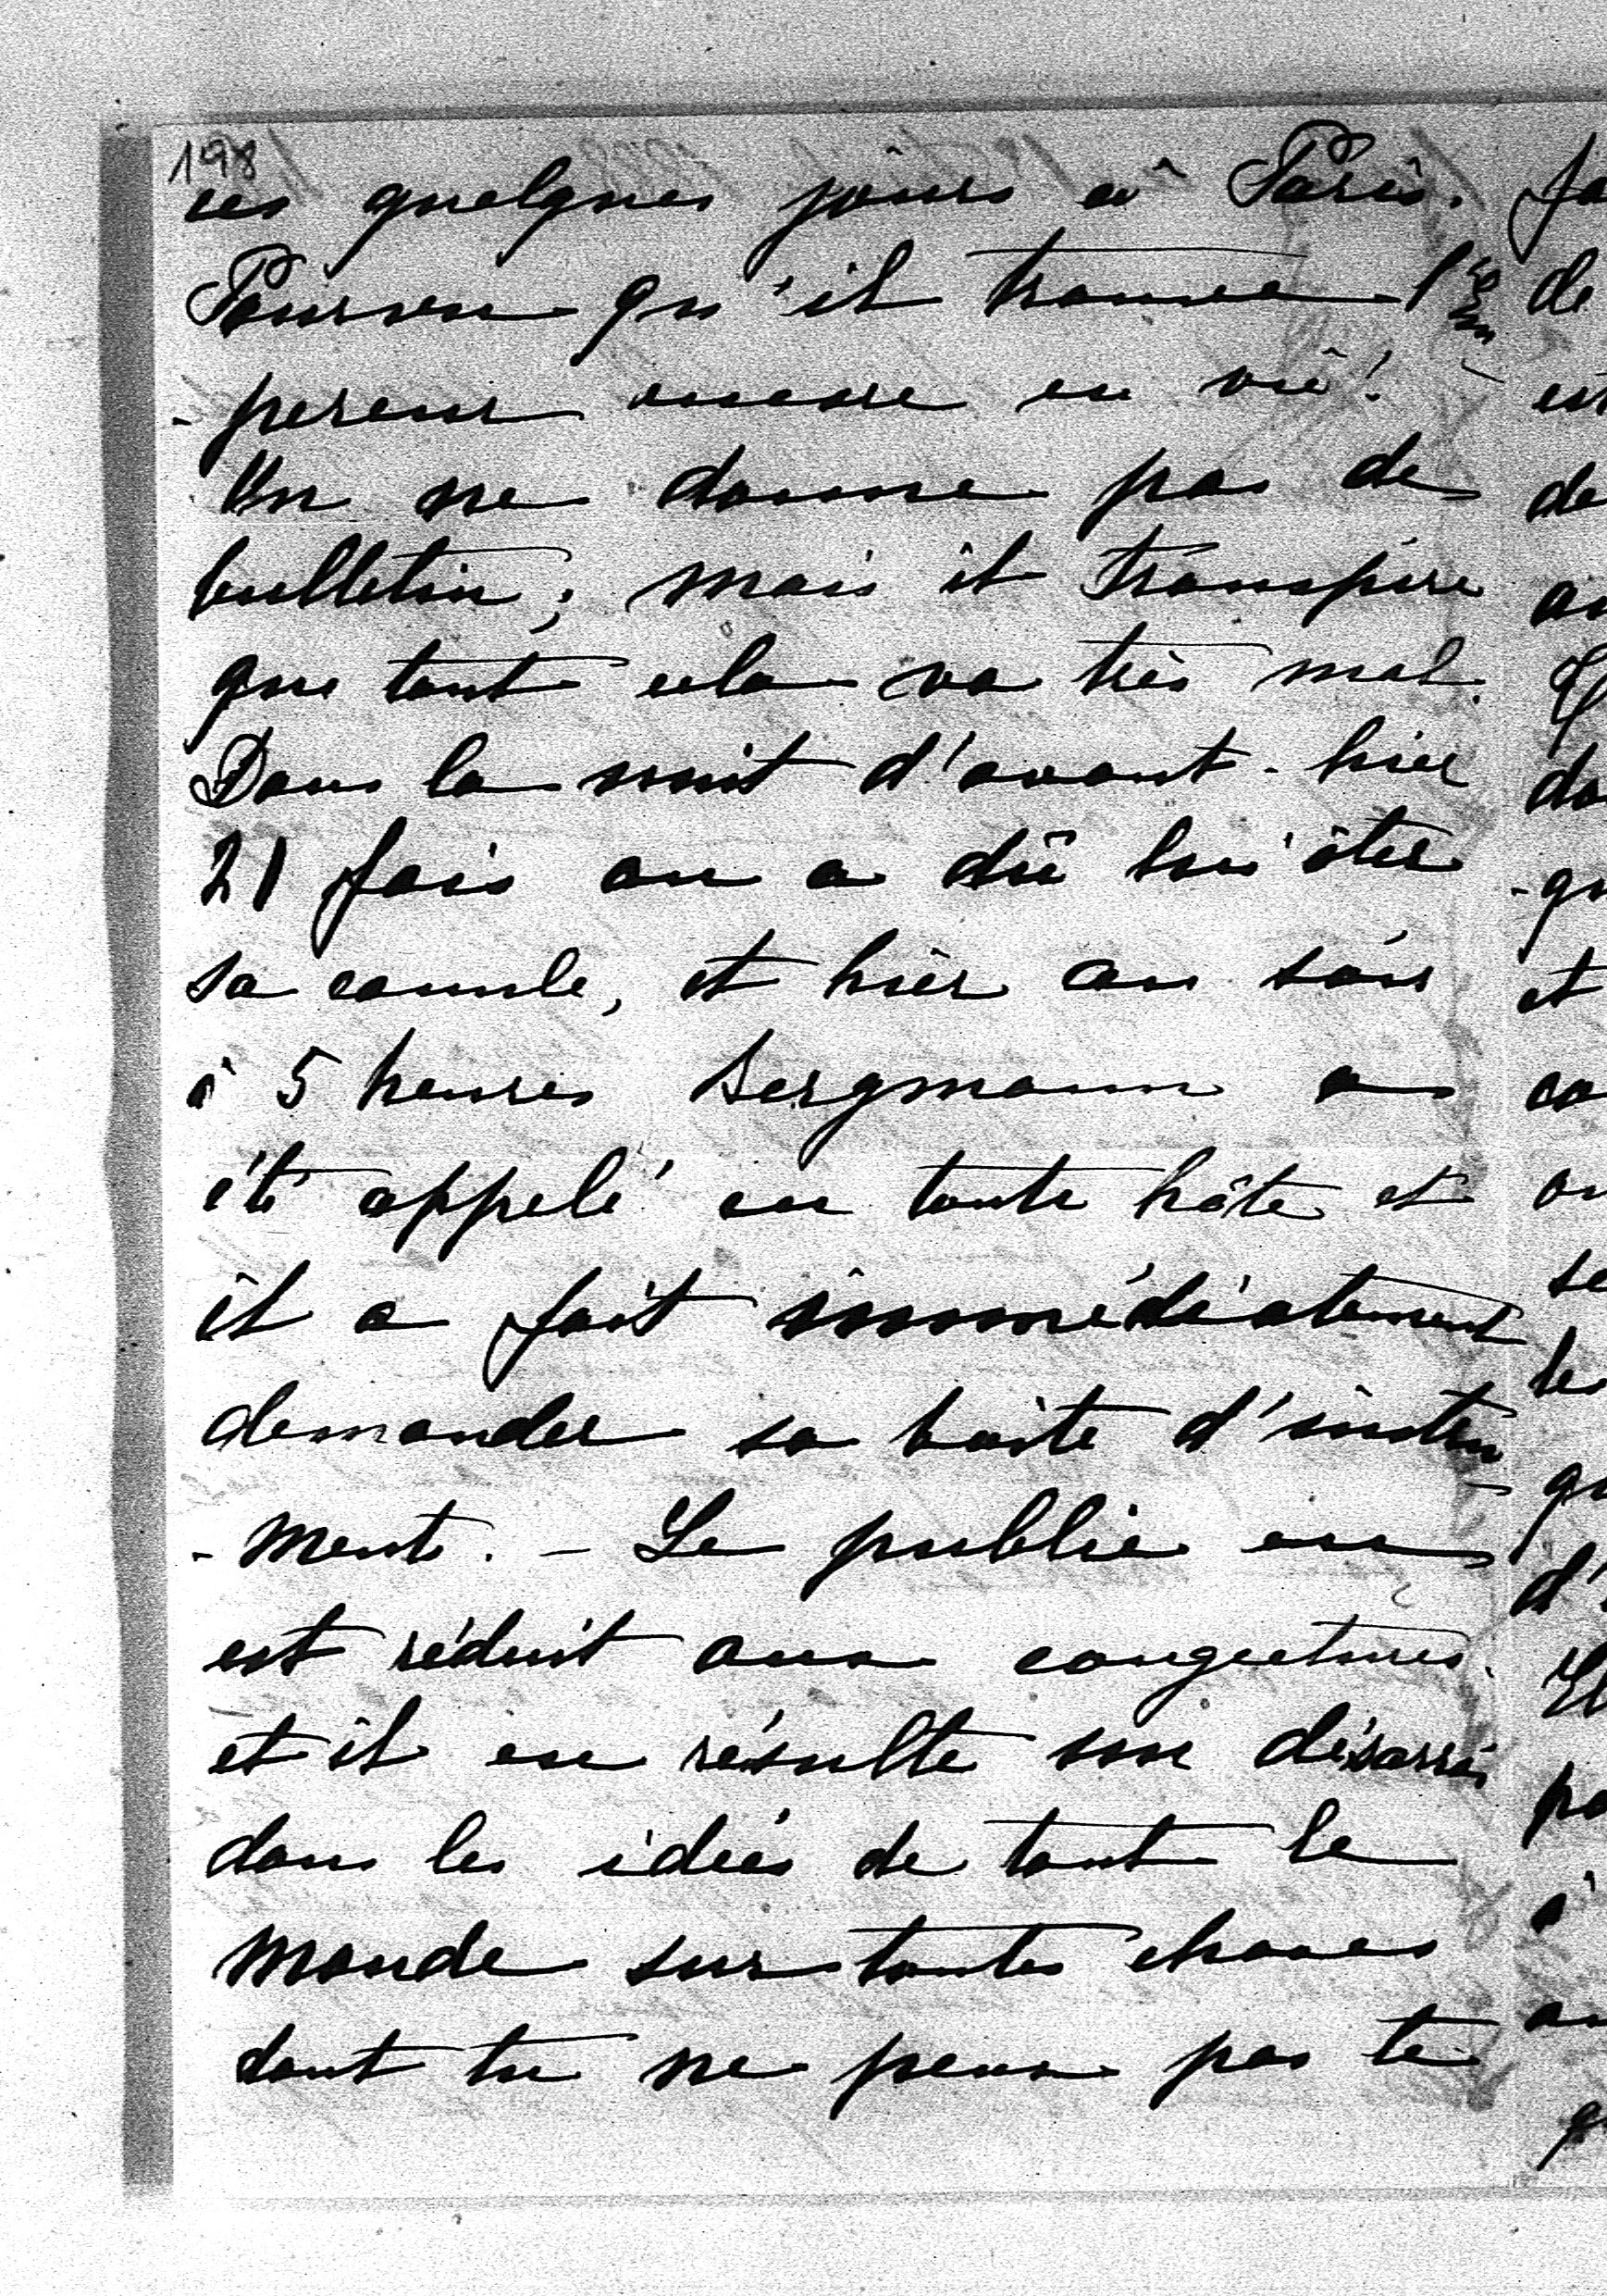 198
ces quelques jours à Paris.
Pourvu qu'il trouve l'Em
-pereur encore en vie!
On ne donne pas de
bulletin; mais il transpire
que tout cela va très mal.
Dans la nuit d'avant-hier
21 fois on a dû lui ôter
sa canule, et hier au soir
à 5 heures Bergmann a
été appelé en toute hâte et
il a fait immédiatement
demander sa boîte d'instru
-ments. - Le public en
est réduit aux congectures
et il en résulte un désarroi
dans les idées de tout le
monde sur toutes choses
dont tu ne peux pas te